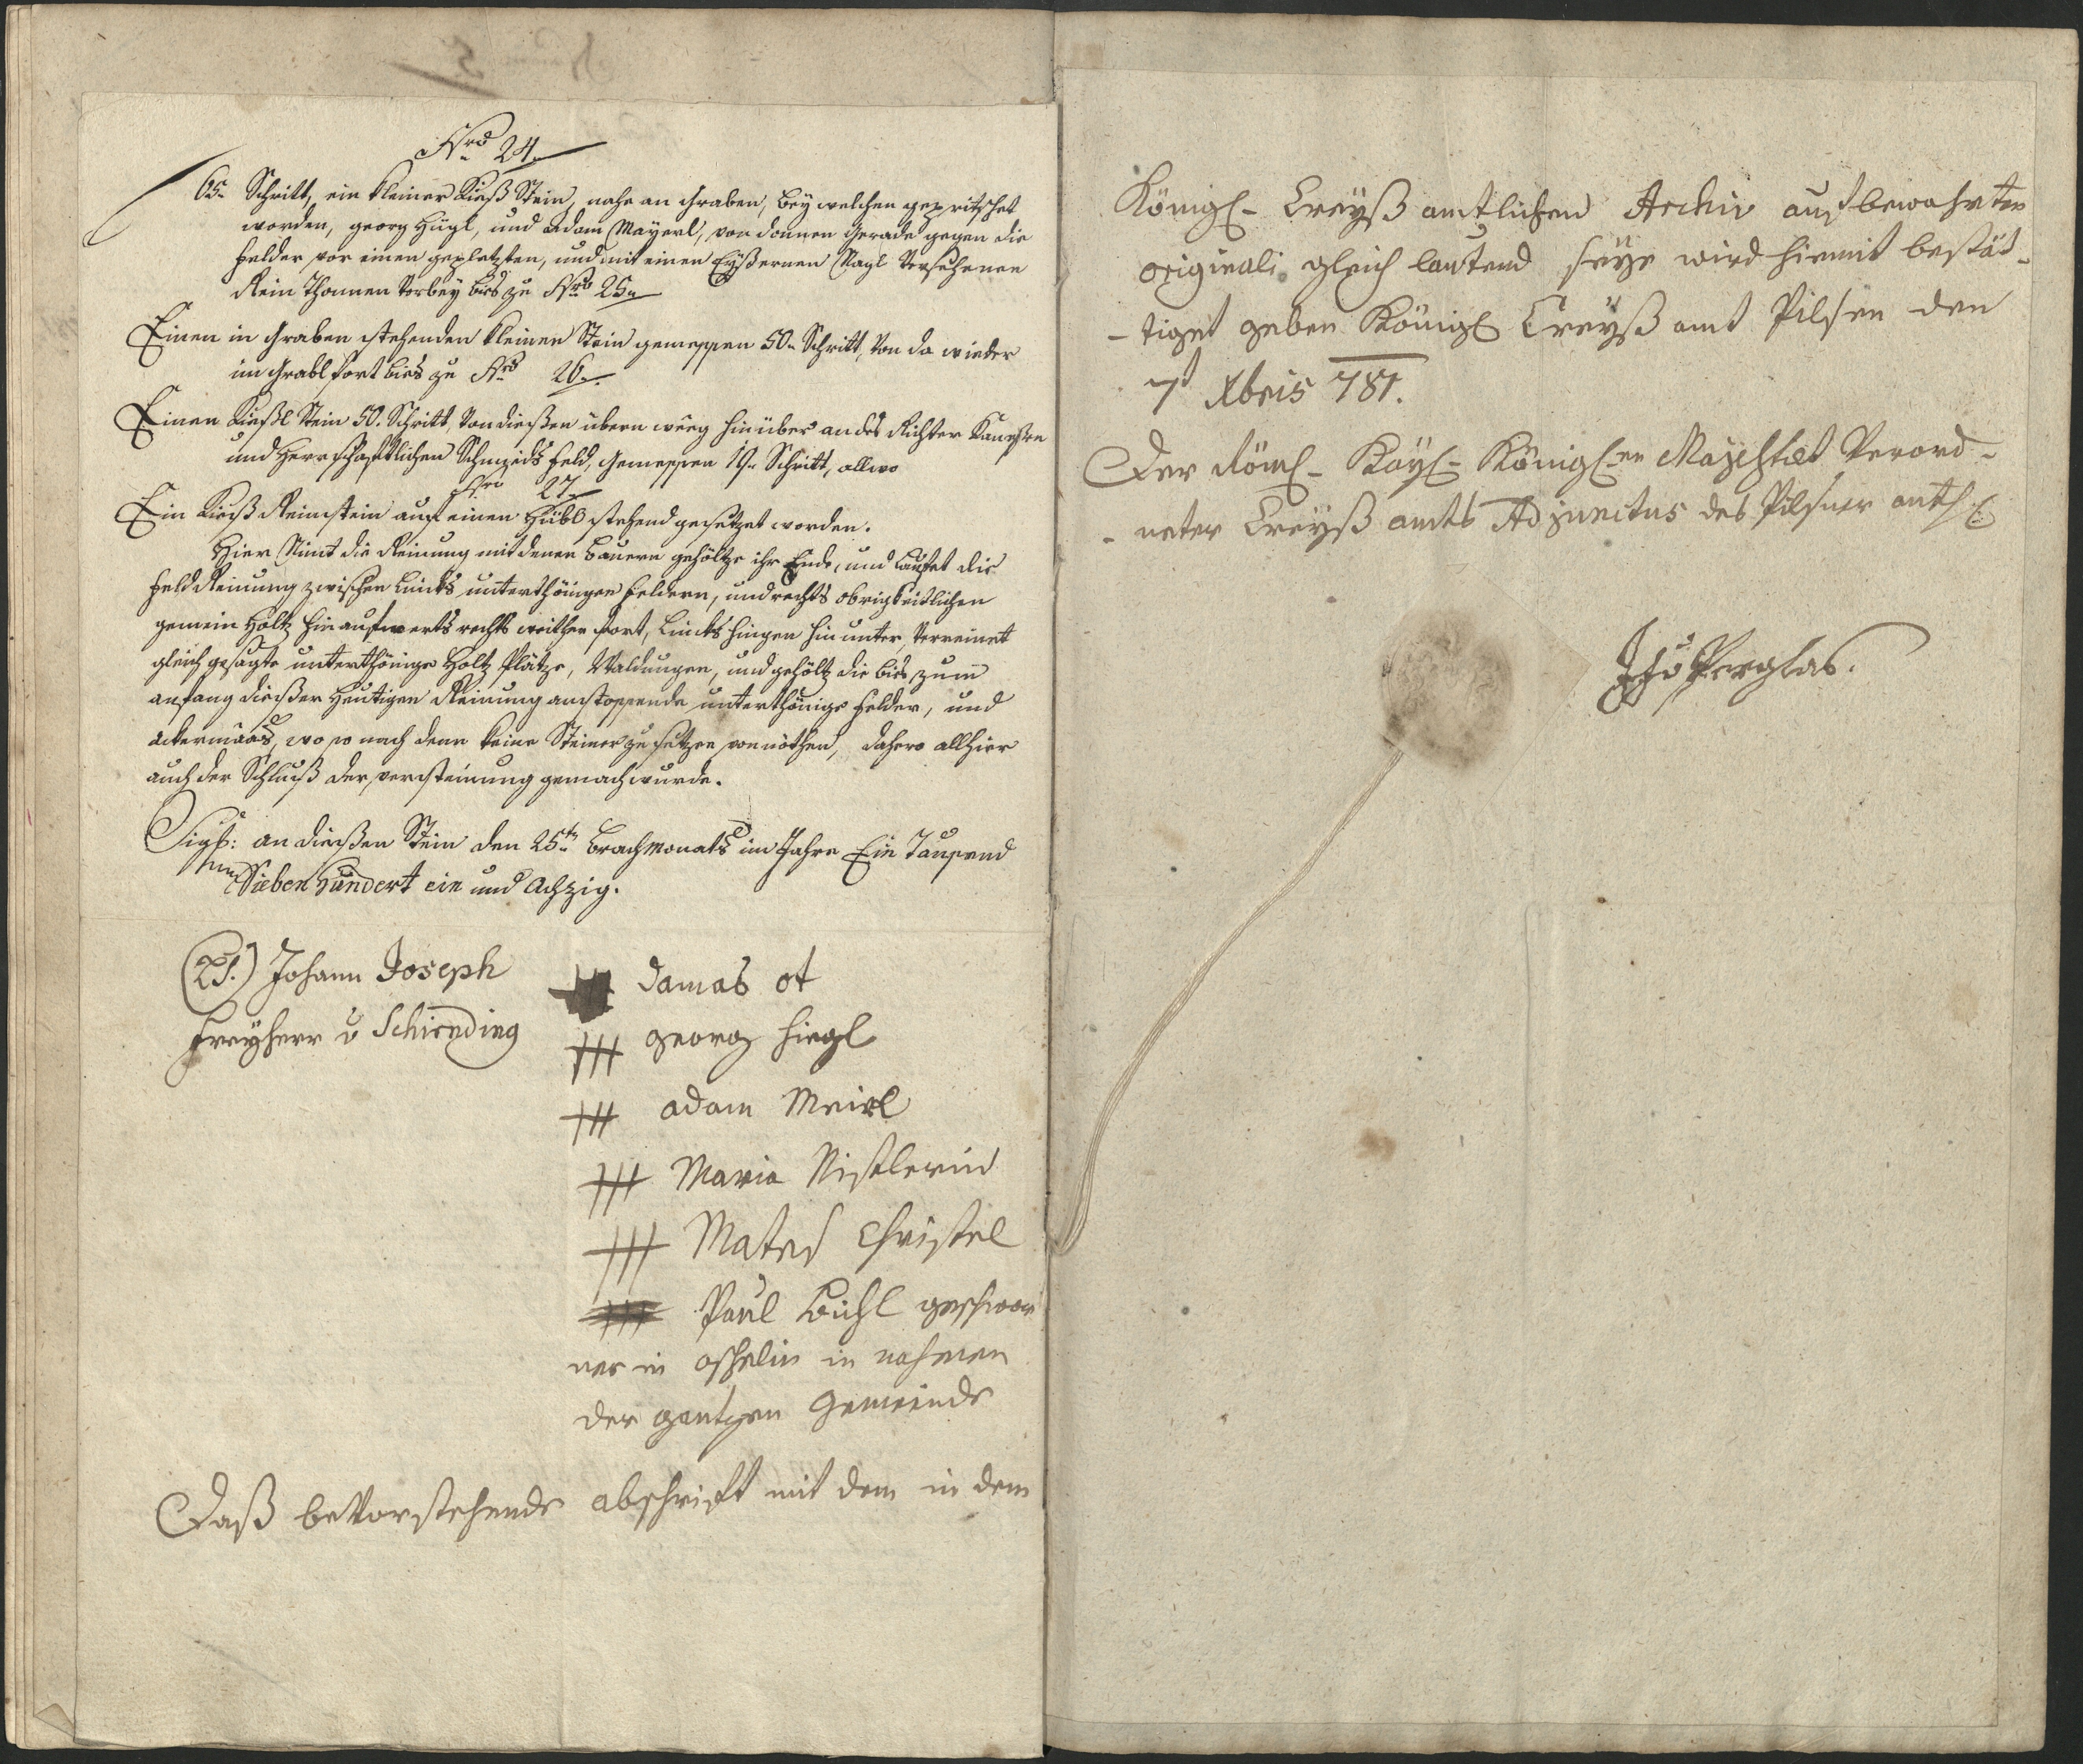 Nro 24.
65. Schritt, ein kleiner Kieß Stein, nahe an Graben, bey welchen gepritschet
worden, georg Hügl, und Adam Mayerl, von dannen Gerade gegen die
Felder vor einen geplatzten, und mit einen Eyßernen Nagl Versehenen
Rein Thannen Vorbey bies zu Nro 25.
Einen in Graben stehenden kleinen Stein gemessen 50. Schritt, Von da wieder
im Grabl fort bies zu Nro 26.
Einen Kießl Stein 50. Schritt, Von dießen übern weeg hinüber an des Richter
und Herrschaftlichen Schmieds Feld, Gemessen 19. Schritt, allwo
Nro 27.
Ein Kieß Reinstein auf einen Hübl stehend gesetzet worden.
Hier Nimt die Reinung mit denen Bauern gehöltze ihr Ende, und Laufet die
Feld Reinung zwischen Lincks unterthänigen Feldern, und rechts obrigkeitlichen
gemein Holtz hinaufwerts rechts weithen fort, Lincks hingen hinunter, Verreinet
gleich gesagte unterthänige Holtz Plätze, Waldungen, und gehöltz die bies zum
anfang dießer Heutigen Reinung anstossende unterthänige Felder, und
ackermaas, wo so nach denn keine Steiner zu setzen von nöthen, dahero allhier
auch der Schluß der versteinung gemach wurde.
Sigl: an dießen Stein den 25ten Brachmonats im Jahre Ein Tausend
Sieben Hundert ein und Achzig.
(LS.) Johann Joseph
Freyherr v Schirnding
+++ Damas ot
+++ georg hiegl
+++ adam Meirl
+++ Maria Nistlerin
+++ Mates Christel
+++ Paul Bichl geschwor
ner in oschelin in nahmen
der gantzen Gemeinde
Daß beVorstehende abschrift mit dem in dem
Königl- Creyß amtlichen Archiv aufbewahrten
originali gleich lautend seye wird hiemit bestät-
-tiget geben Königl Creyß amt Pilsen den
7t Xbris 781.
Der Röml- Kayl- Königl-en Mayestæt Verord-
-neter Creyß amts Adjunctus des Pilsner
Perglas.